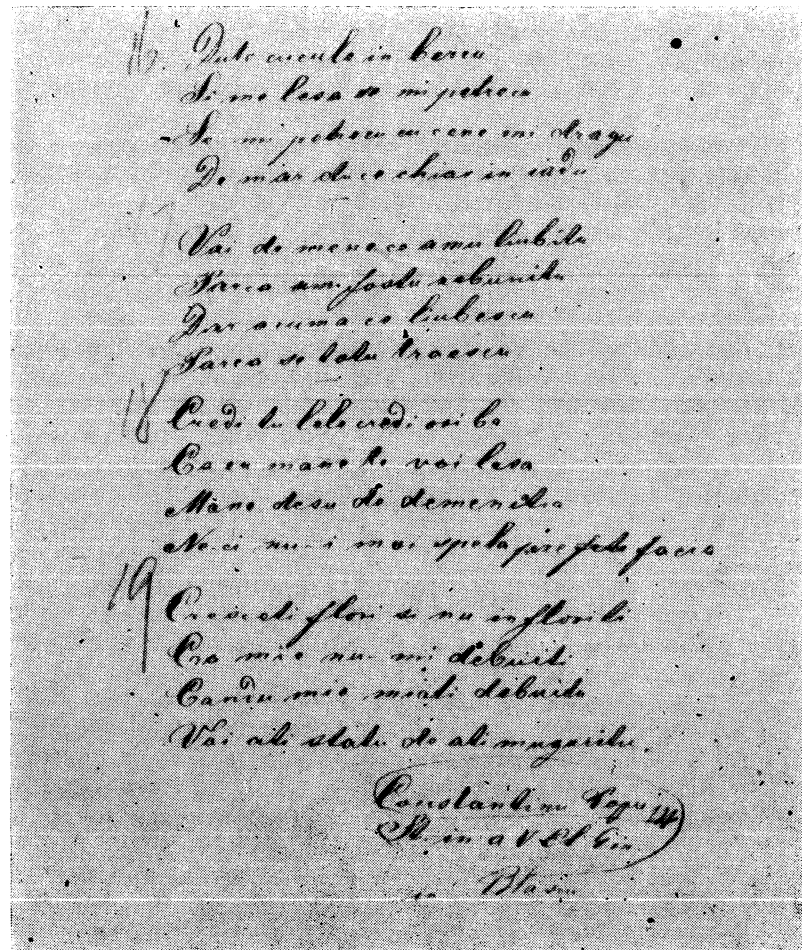 16. Dute cucule in bercu
Si me lasa se mi petrecu
Se mi petrecu cu cene mi dragu
De miar duce chiar in iadu
17
Vai de mene ce amu iubitu
Parca am fostu nebunitu
Dar acuma ce iubescu
Parca se totu traescu
18
Credi tu lele credi ori be
Ca eu mane te voi lasa
Mane desu de demenétia
Neci nu-i mai spela pre fetia
19
Cresceti flori si nu infloriti
Ca mie nu-mi debuiti
Candu mie miati debuitu
Vai ati statu de ati muguritu.
Constantinu Popu
St. in a V Cl Gin
Blasiu